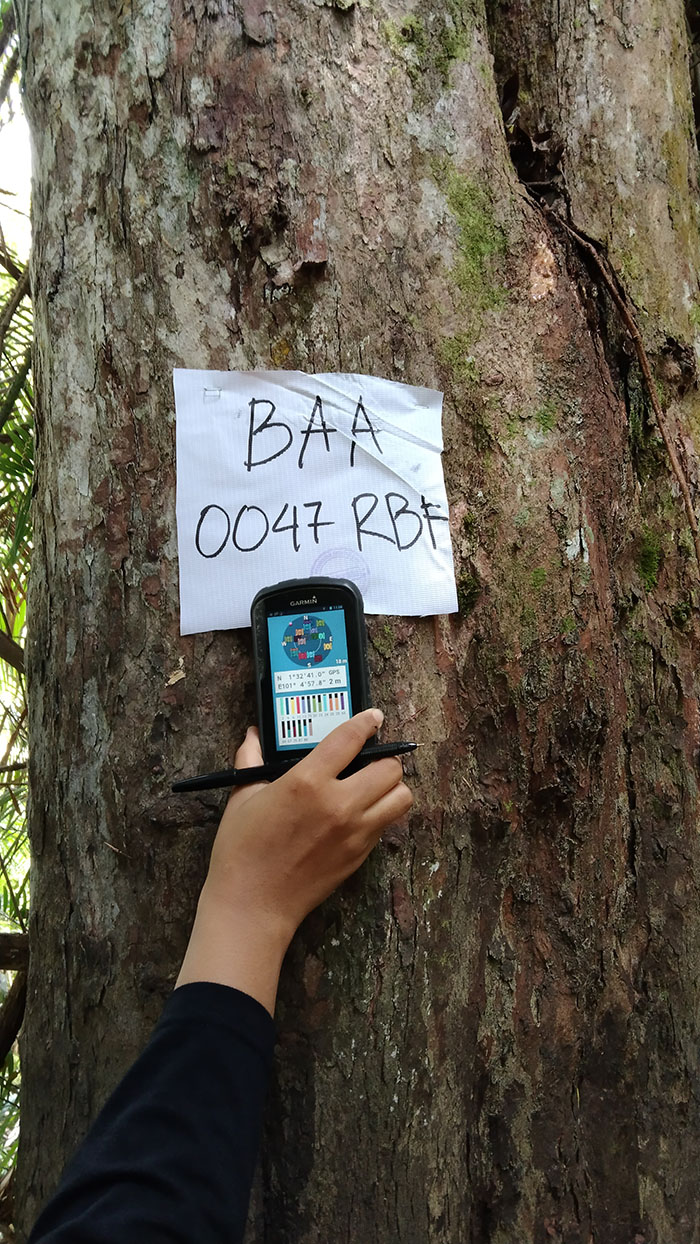 BAA
0047 RBF
GARMIN
N
W
E
S
N 1°32'41.0" GPS
E101° 4'57.8" 2 m